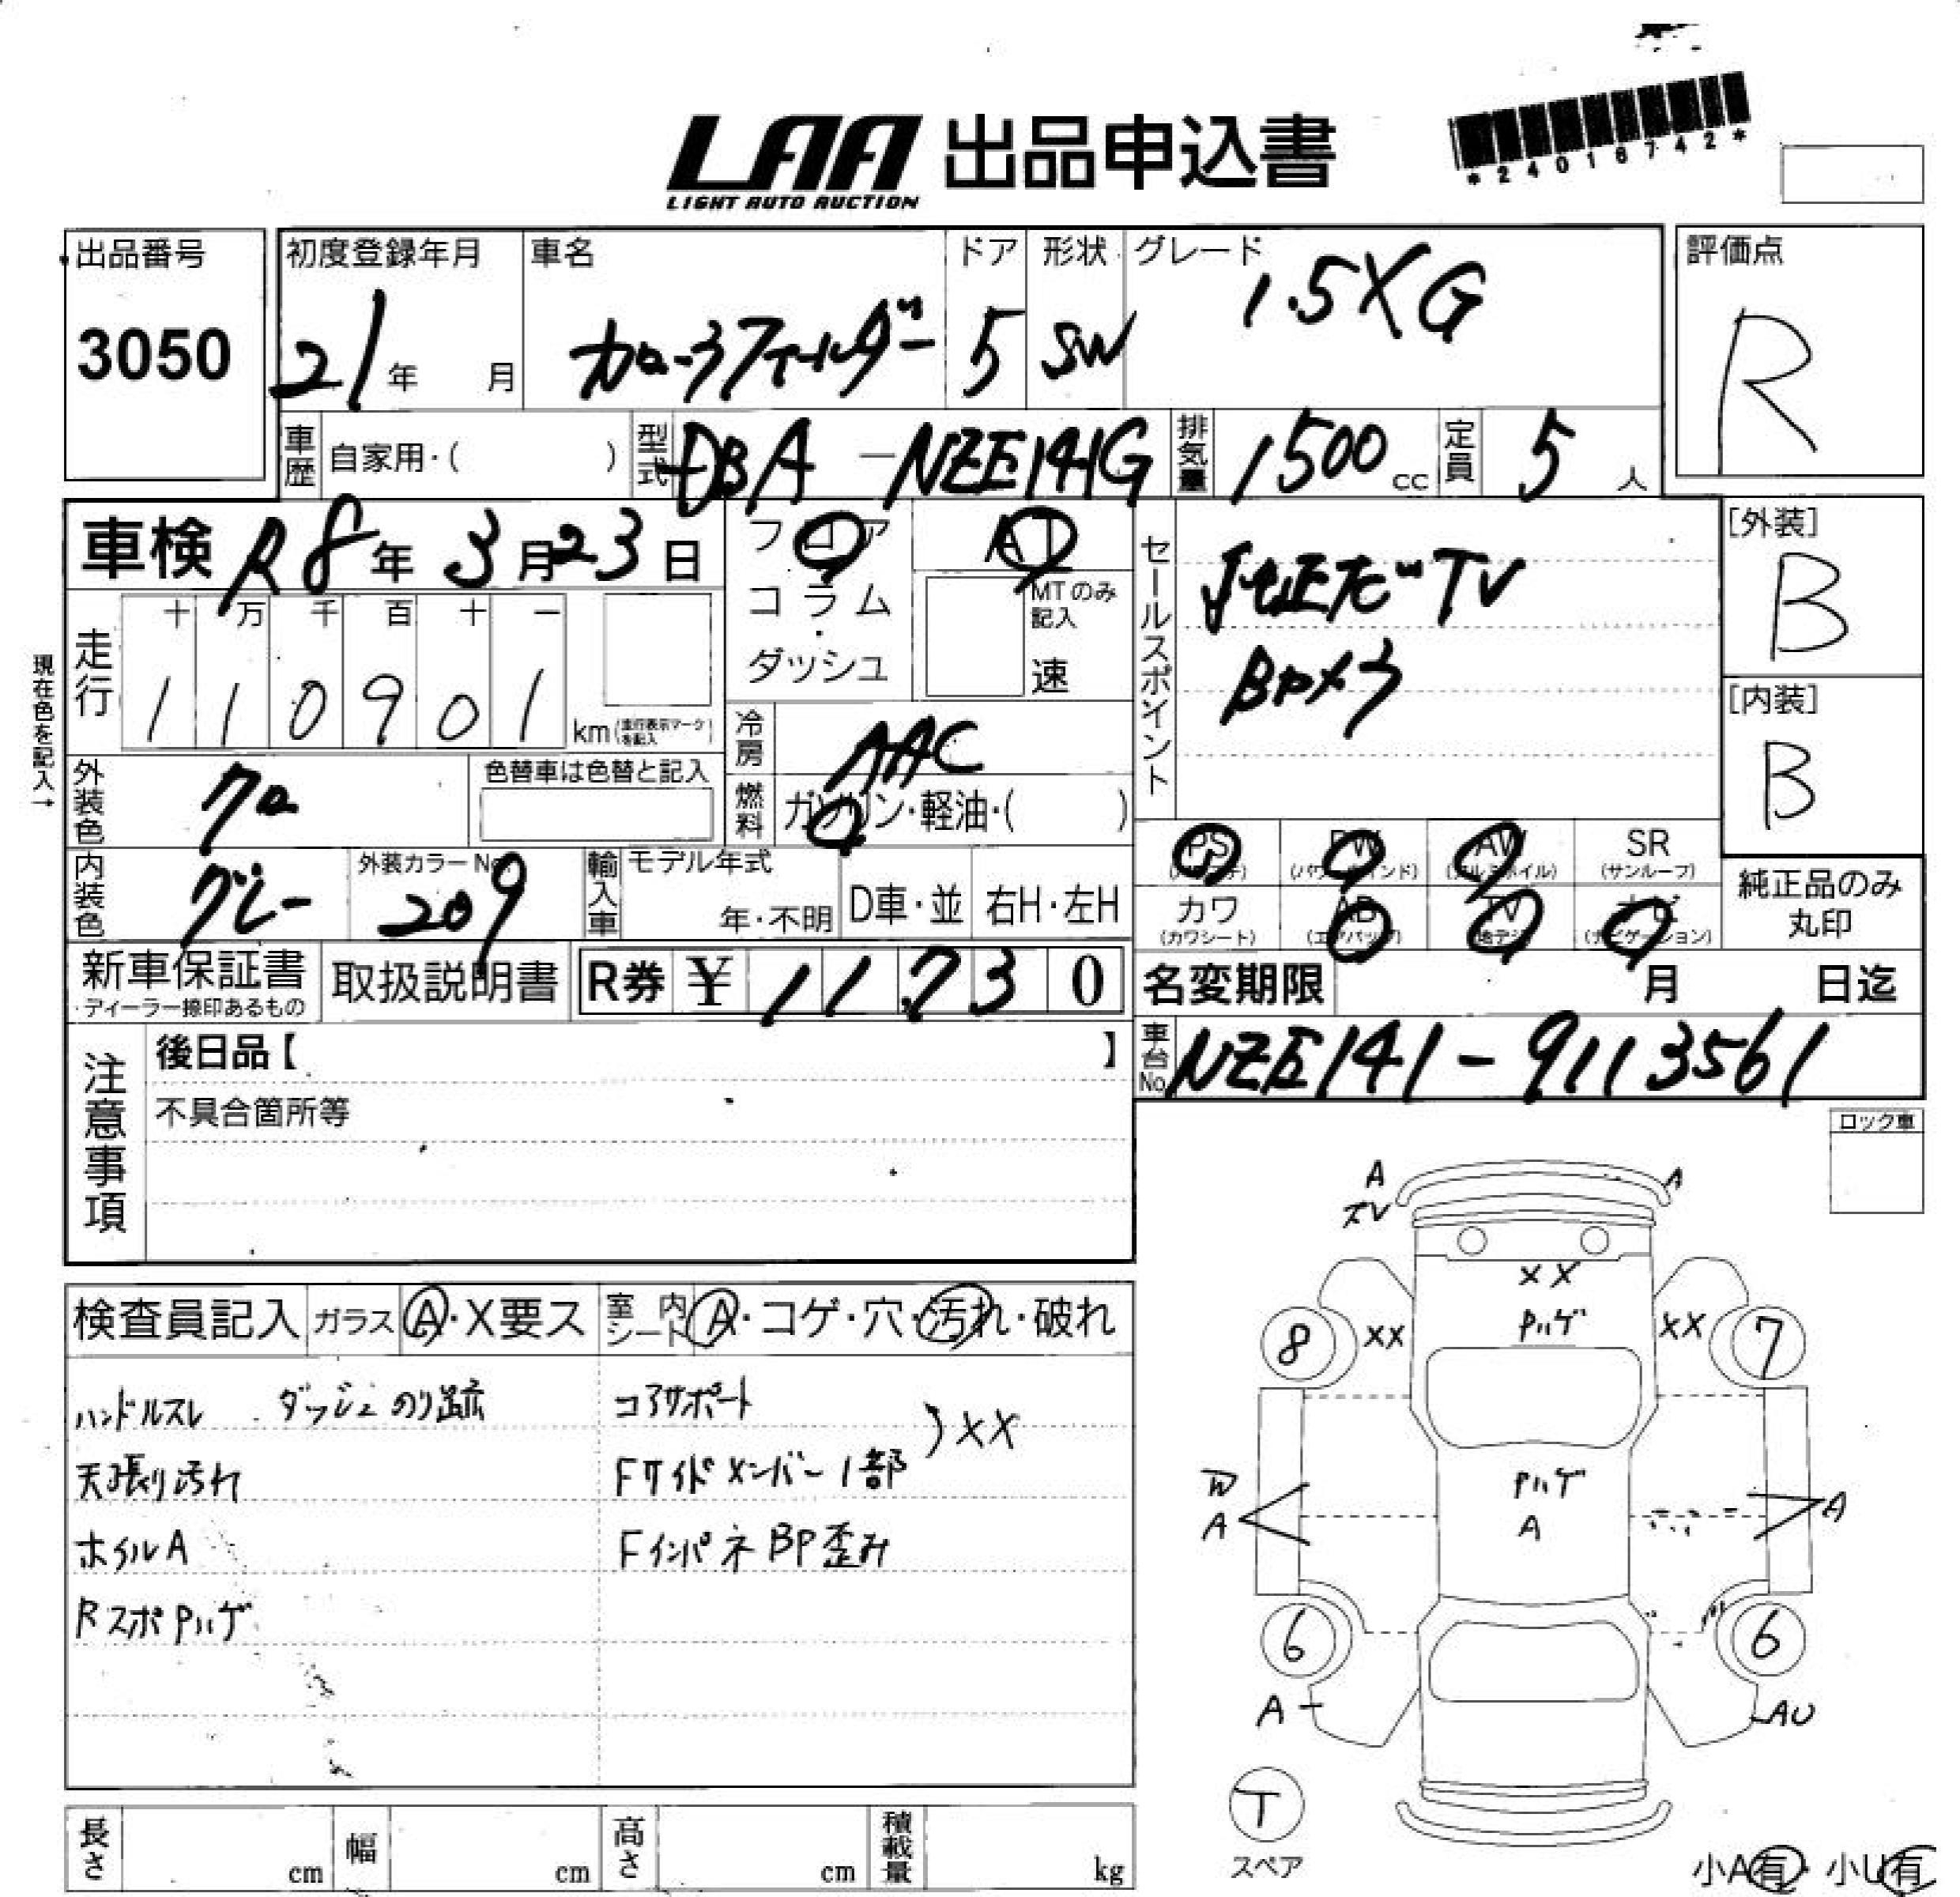 LAA 出品申込書
LIGHT AUTO AUCTION
*24016742*
出品番号
3050
初度登録年月
21年 月
車名
カローラフィールダー
ドア
5
形状
SW
グレード
1.5XG
評価点
R
車歴 自家用・( )
型式 DBA-NZE141G
排気量 1500cc
定員 5人
車検 R8年3月23日
フロア
コラム
・
ダッシュ
AT
MTのみ記入
速
セールスポイント
純正ナビTV
Bカメラ
[外装]
B
[内装]
B
現在色を記入→
走行
十 万 千 百 十 一
1 1 0 9 0 1 km(走行表示マークを記入)
冷房 AAC
燃料 ガソリン・軽油・( )
外装色 クロ
色替車は色替と記入
内装色 グレー
外装カラーNo.
209
輸入車
モデル年式
年・不明
D車・並
右H・左H
PS (パワステ)
PW (パワーウインド)
AW (アルミホイル)
SR (サンルーフ)
カワ (カワシート)
AB (エアバッグ)
TV (地デジ)
ナビ (ナビゲーション)
純正品のみ
丸印
新車保証書
・ディーラー捺印あるもの
取扱説明書
R券 ¥ 11,730
名変期限 月 日迄
車台No. NZE141-9113561
注意事項
後日品【 】
不具合箇所等
ロック車
検査員記入 ガラス A・X要ス
室内シート A・コゲ・穴・汚れ・破れ
ハンドルスレ ダッシュのり跡
天張り汚れ
ホイルA
RスポPハゲ
コアサポート
Fサイドメンバー1部
)XX
FインパネBP歪み
A A
XX
Pハゲ
8 XX XX 7
W
A
Pハゲ
A
A
6 6
A AU
T
スペア
小A有・小U有
長さ cm
幅 cm
高さ cm
積載量 kg